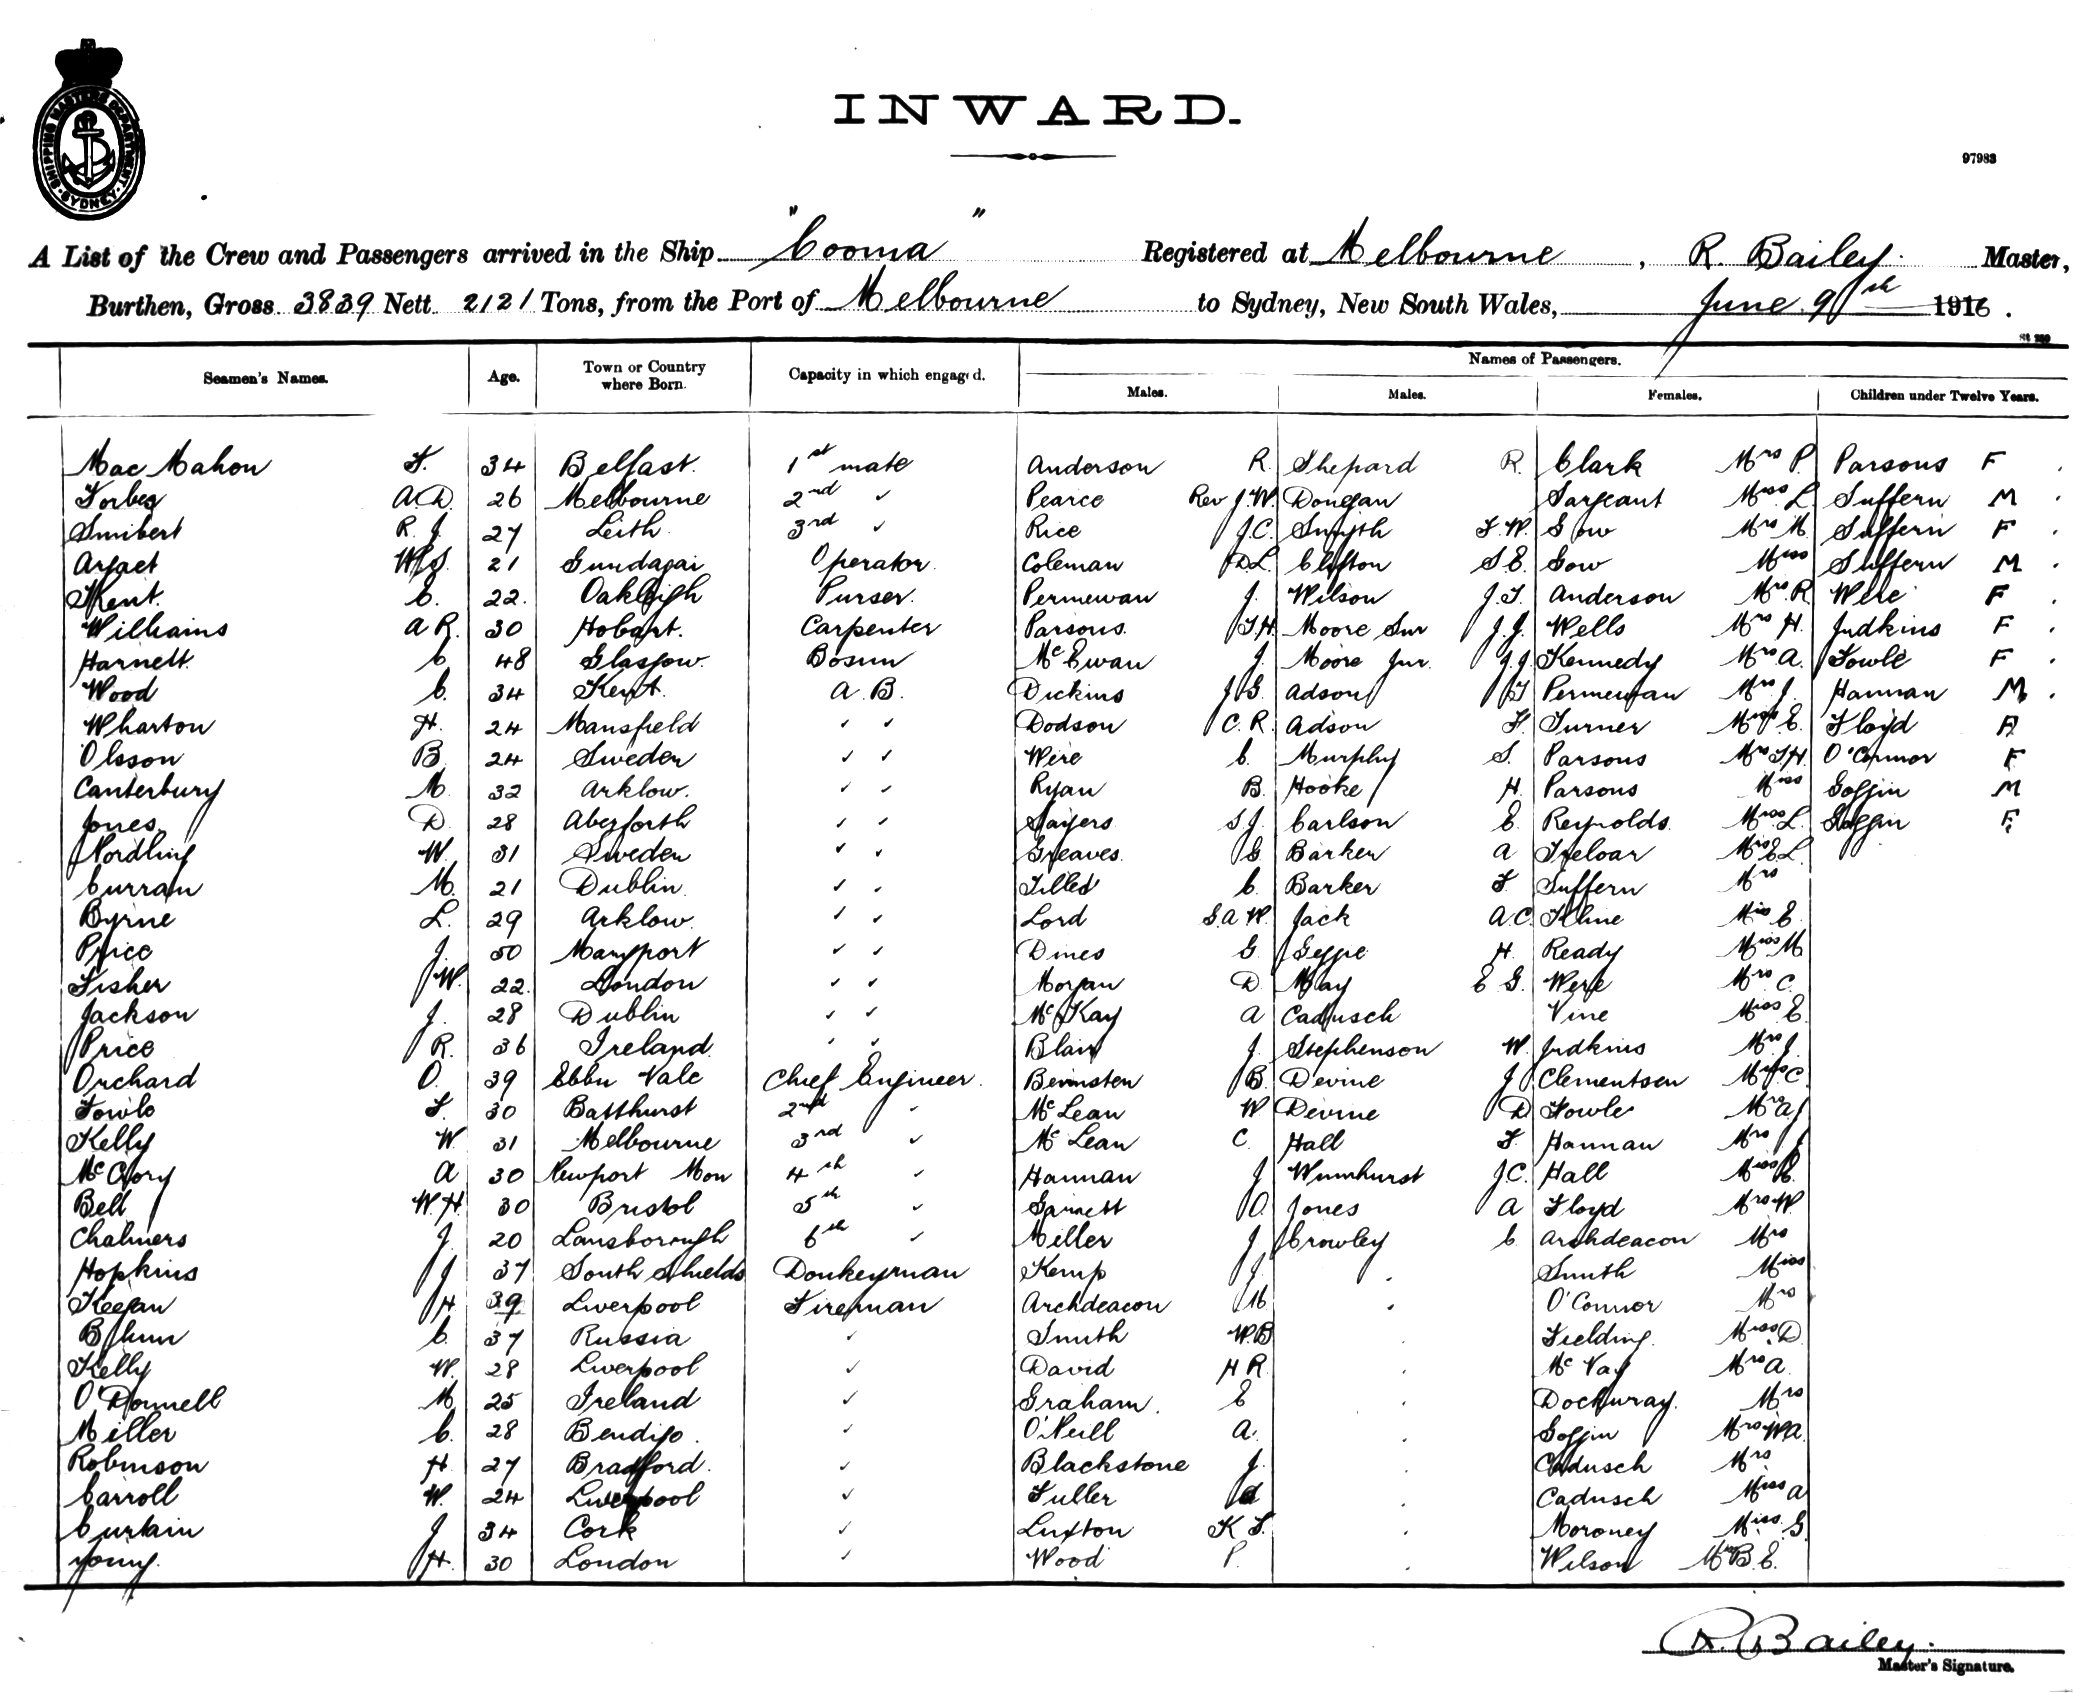 SHIPPING MASTERS DEPARTMENT · SYDNEY ·
INWARD.
97983
A List of the Crew and Passengers arrived in the Ship "Cooma" Registered at Melbourne, R. Bailey. Master,
Burthen, Gross 3839 Nett 2121 Tons, from the Port of Melbourne to Sydney, New South Wales, June 9th 1916.
Names of Passengers.
Seamen's Names. Age. Town or Country where Born. Capacity in which engaged. Males. Males. Females. Children under Twelve Years.
Mac Mahon F. 34 Belfast. 1st mate Anderson R. Shepard R. Clark Mrs P. Parsons F
Forbes A.D. 26 Melbourne 2nd ✓ Pearce Rev J.W. Donegan Sargeant Miss L Suffern M
Smibert R. J. 27 Leith. 3rd ✓ Rice J.C. Smyth F.W. Gow Mrs M. Suffern F
21 Gundagai Operator. Coleman D.L. Clifton S.E. Gow Miss Suffern M
Kent. C. 22. Oakleigh Purser. Permewan J. Wilson J.T. Anderson Mrs R Were F
Williams A R. 30 Hobart. Carpenter Parsons T.H. Moore Snr J.J. Wells Mrs H. Judkins F
Harnett. C. 48 Glasgow. Bosun McEwan J. Moore Jnr. J.J. Kennedy Mrs A. Fowle F
Wood C. 34 Kent. A.B. Dickins J G. Adson T Permewan Mrs J. Hannan M
Wharton H. 24 Mansfield ✓ ✓ Dodson C.R. Adson F. Turner E. Floyd
Olsson B. 24 Sweden ✓ ✓ Were C. Murphy S. Parsons Mrs T.H. O'Connor F
Canterbury M. 32 Arklow. ✓ ✓ Ryan B. Hooke H. Parsons Miss Goffin M
Jones D. 28 Aberforth ✓ ✓ Sayers S.J. Carlson E. Reynolds. Miss L. Goffin F.
Nordling W. 31 Sweden ✓ ✓ Greaves. G. Barker A Treloar Mrs E L.
Curran M. 21 Dublin. ✓ ✓ C. Barker F. Suffern Mrs
Byrne L. 29 Arklow. ✓ ✓ Lord S.A W. Jack A.C. Kline Miss E.
Price J. 50 Maryport ✓ ✓ Dines G. H. Ready Miss M
Fisher J.W. 22. London ✓ ✓ Morgan D. May E G. Were Mrs C.
Jackson J. 28 Dublin ✓ ✓ McKay A Cadusch Vine Miss E.
Price R. 36 Ireland. ✓ ✓ Blair J. Stephenson W. Judkins Mrs J
Orchard O. 39 Ebbu Vale Chief Engineer. B. Devine J Clementsen C.
Fowle F. 30 Batthurst 2nd ✓ McLean W Devine D Fowle Mrs A
Kelly W. 31 Melbourne 3rd ✓ McLean C. Hall F. Hannan Mrs J
McCrory A 30 Newport Mon 4th ✓ Hannan J J.C. Hall Miss
Bell W.H. 30 Bristol 5th ✓ Garnett O. Jones A Floyd Mrs W
Chalmers J. 20 Lansborough 6th ✓ Miller J Crowley C. Archdeacon Mrs
Hopkins J 37 South Shields Donkeyman Kemp J. Smith Miss
Keegan H. 39 Liverpool Fireman Archdeacon O'Connor Mrs
C. 37 Russia ✓ Smith W.B. Fielding. Miss D.
Kelly W. 28 Liverpool ✓ David H R. McVay Mrs A.
O'Donnell M. 25 Ireland ✓ Graham. E Dockwray. Mrs
Miller C. 28 Bendigo. ✓ O'Neill A. Goffin Mrs W A.
Robinson H. 27 Bradford. ✓ Blackstone J. Cadusch Mrs
Carroll W. 24 Liverpool ✓ Fuller Cadusch Miss A
Curtain J 34 Cork ✓ Luxton K F. Moroney Miss. G.
Young. H. 30 London ✓ Wood P. Wilson E.
R. Bailey.
Master's Signature.